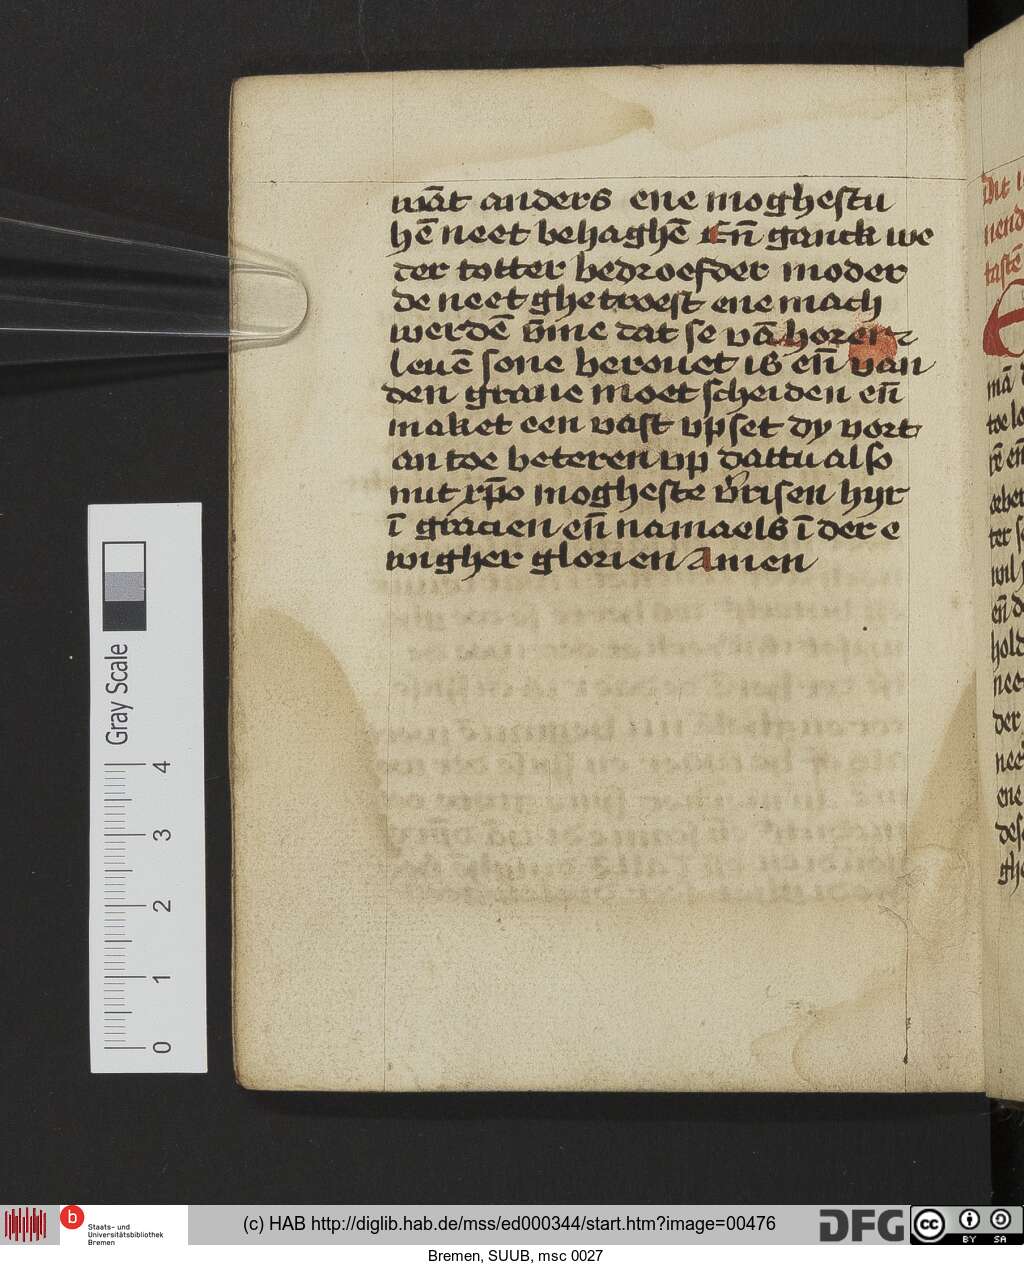 wāt anders ene moghestu
hē neet behaghē Eñ ganck we
der totter bedroefder moder
de neet ghetroest ene mach
werdē v̄me dat se vā horen
leuē sone berouet is eñ van
den graue moet scheiden eñ
maket een vast vpset dy vort
an toe beteren vp dattu also
mit xp̄o mogheste v̄risen hyr
ī gracien eñ namaels ī der e
wigher glorien Amen
Dit
nend
tastē
E
mā
toe lo
rē eñ
ter
wil
eñ d
hold
nee
der
nee
ene
des
ghe
Gray Scale
0 1 2 3 4
b
Staats- und
Universitätsbibliothek
Bremen
(c) HAB http://diglib.hab.de/mss/ed000344/start.htm?image=00476
DFG
cc BY SA
Bremen, SUUB, msc 0027